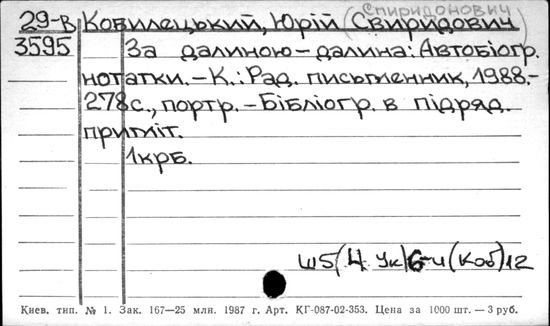 (Спиридонович
29-В Кобилецький, Юрій Свиридович
3595 За далиною-далина: Автобіогр.
нотатки.-К.: Рад. письменник, 1988.-
278с., портр.-Бібліогр. в підряд.
приміт.
1крб.
Ш5(4 Ук)6-4(Коб)12
Киев. тип. № 1. Зак. 167—25 млн. 1987 г. Арт. КГ-087-02-353. Цена за 1000 шт. — 3 руб.